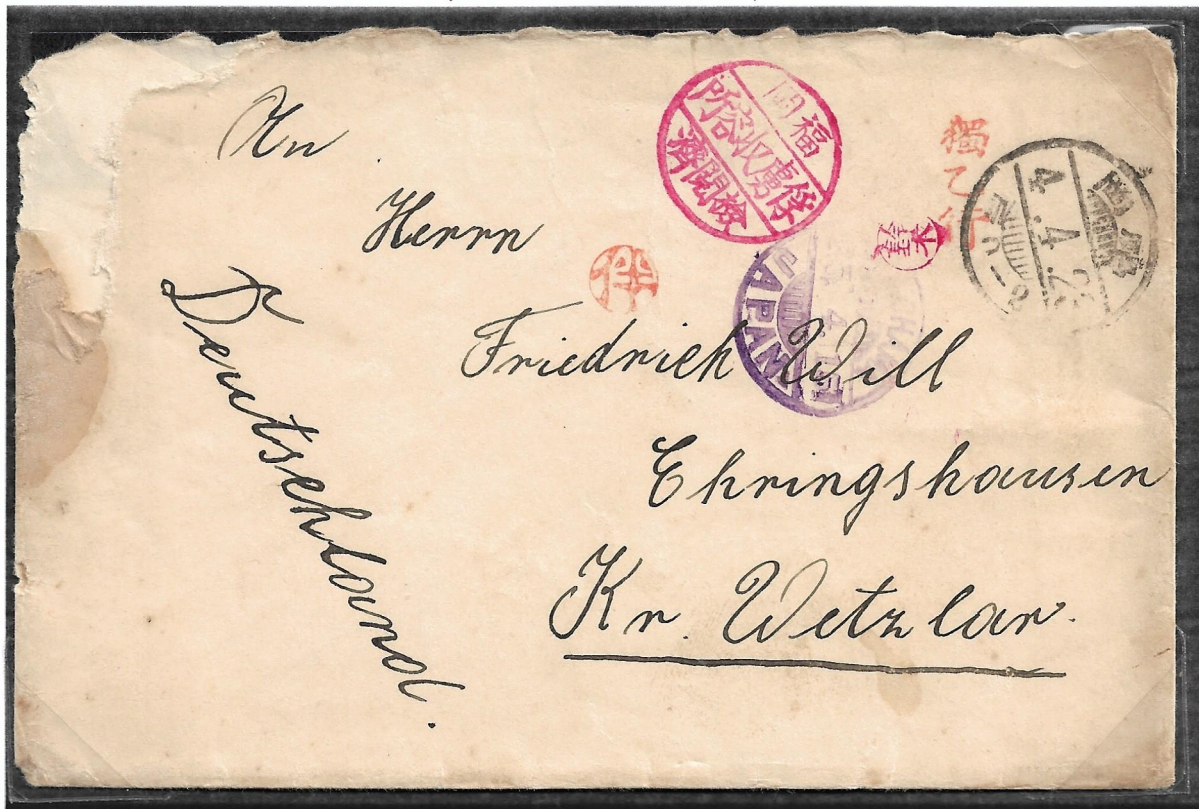 An
Herrn
Friedrich Will
Ehringshausen
Kr. Wetzlar.
Deutschland.
福岡
俘虜収容所
檢閲濟
獨乙行
鈴木
JAPAN
4.4.23